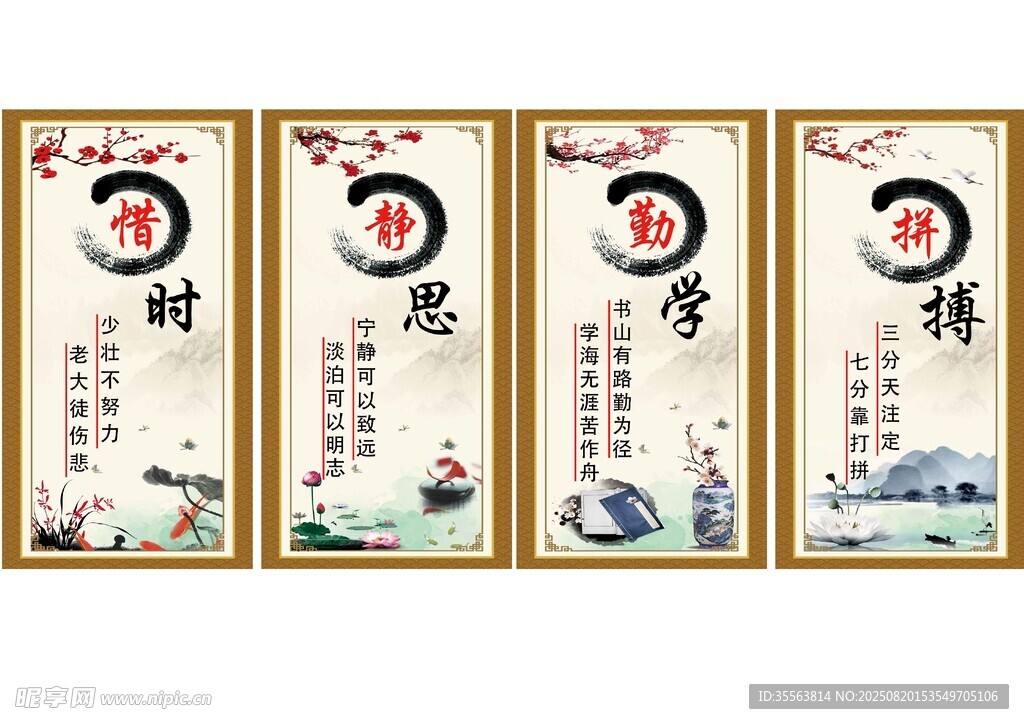 惜时
少壮不努力
老大徒伤悲
静思
宁静可以致远
淡泊可以明志
勤学
书山有路勤为径
学海无涯苦作舟
拼搏
三分天注定
七分靠打拼
昵享网 www.nipic.cn
ID:35563814 NO:20250820153549705106